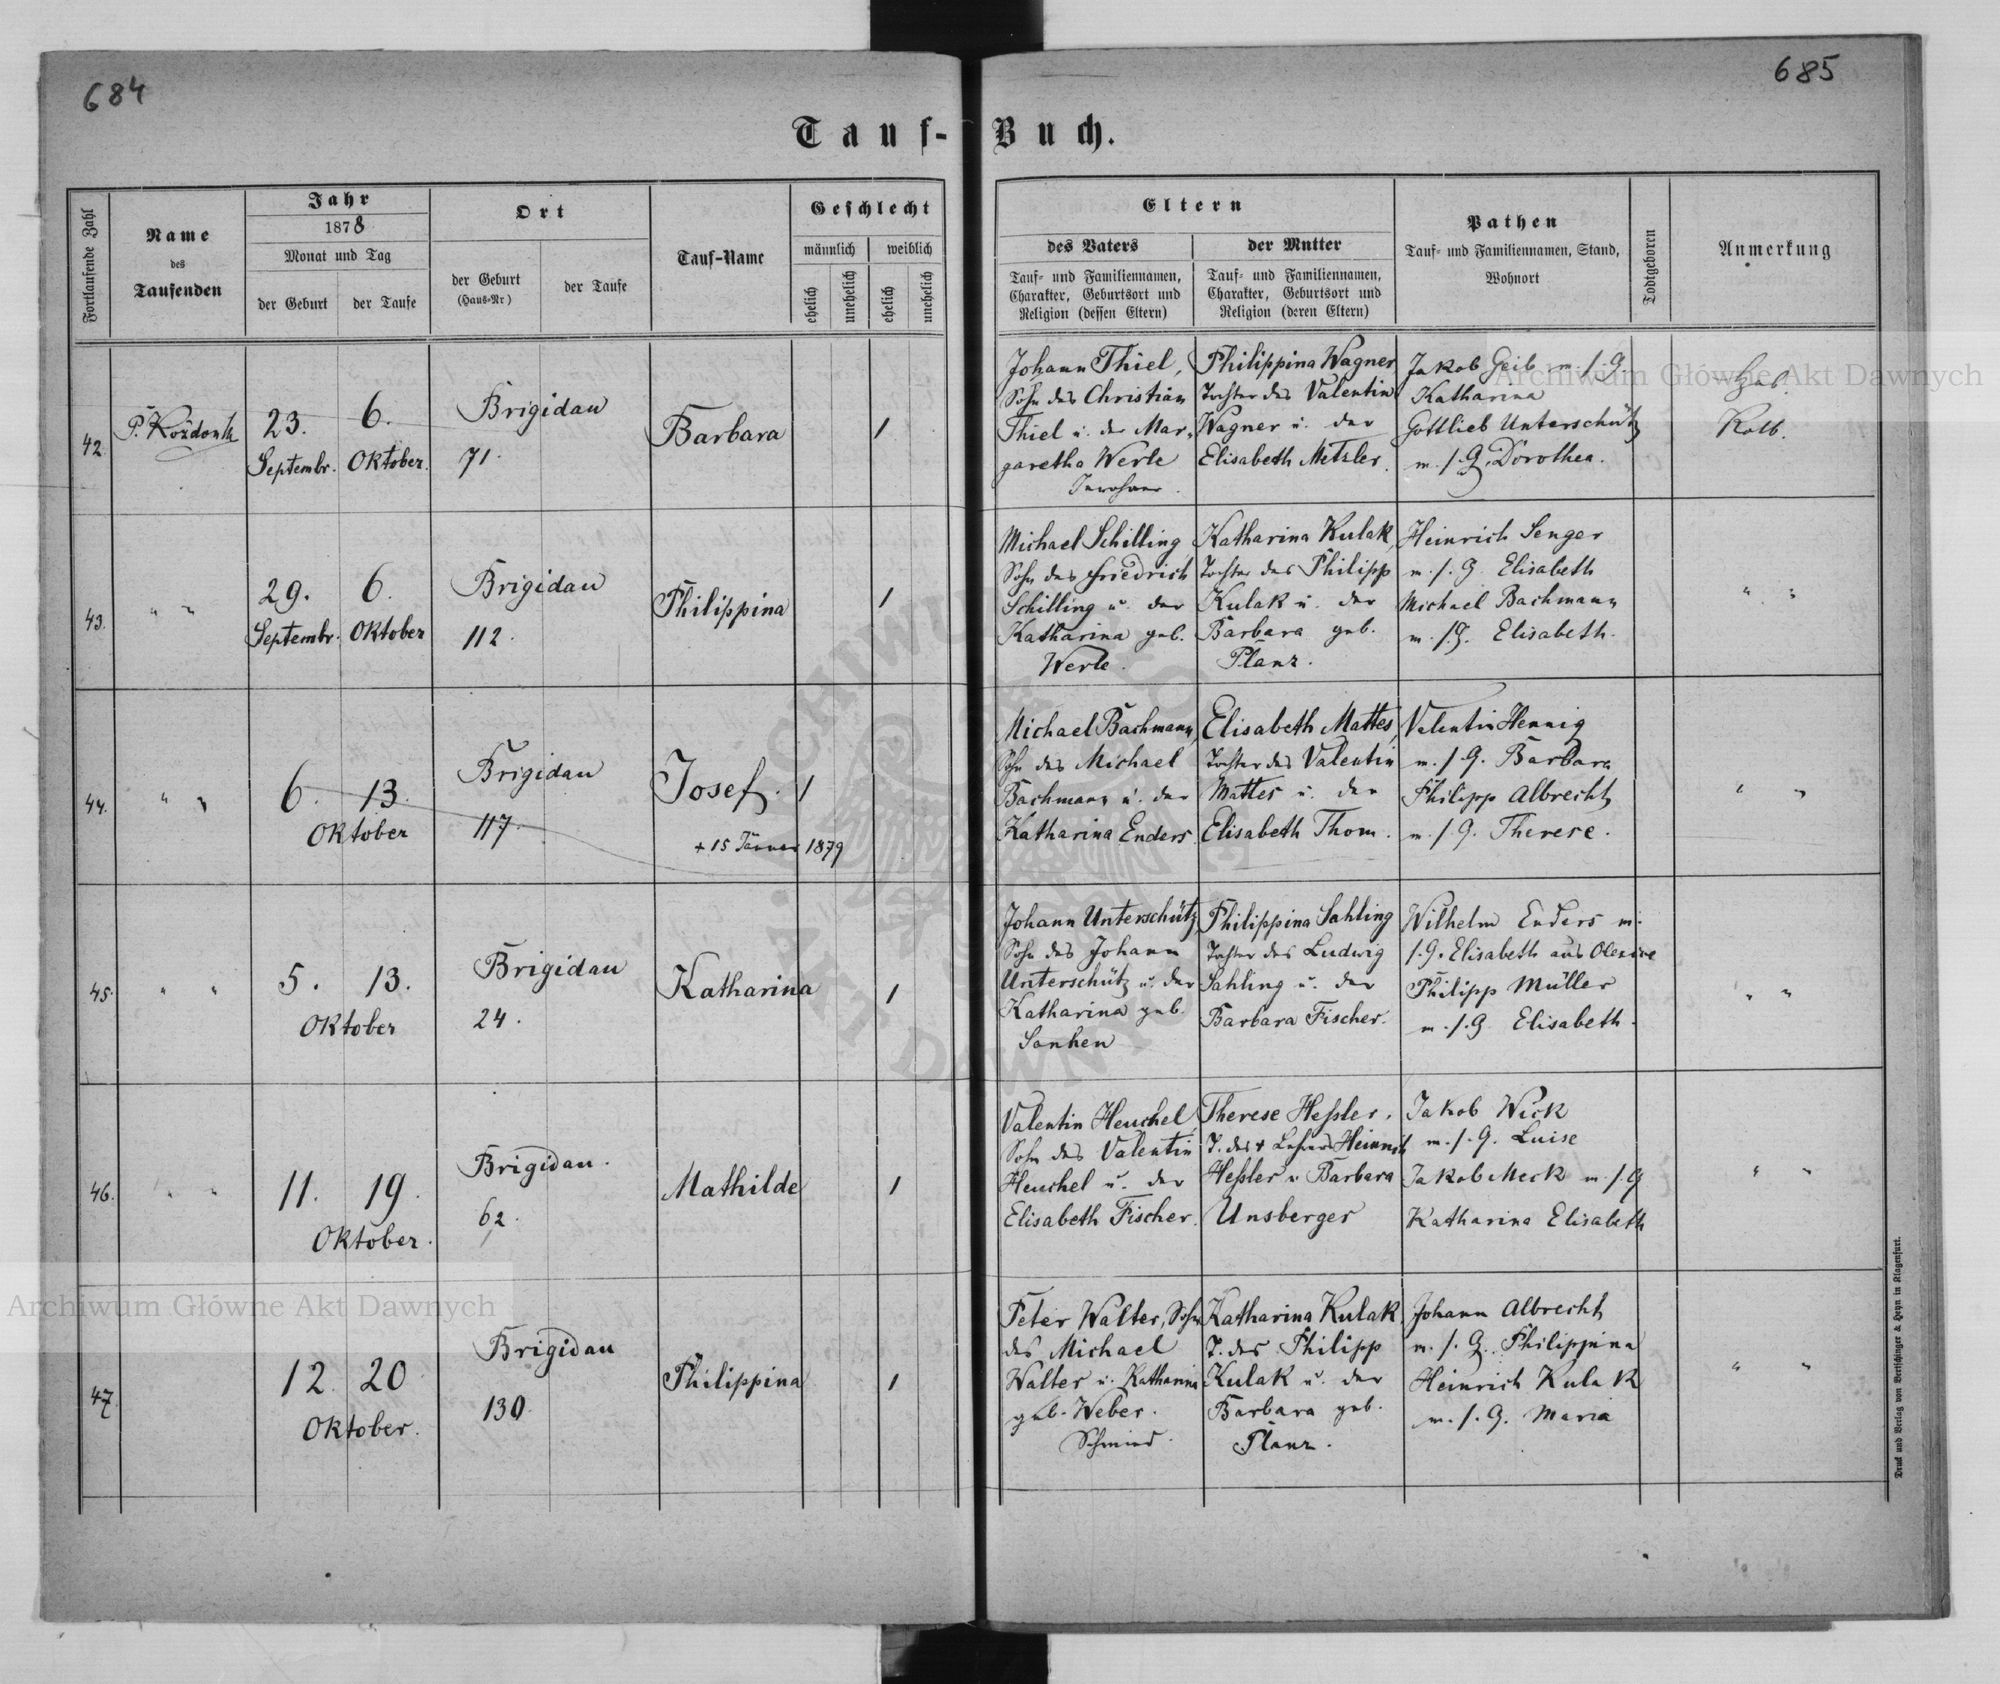 684
685
Tauf-Buch.
Fortlaufende Zahl
Name
des
Taufenden
Jahr
1878
Monat und Tag
der Geburt
der Taufe
Ort
der Geburt
(Haus-Nr)
der Taufe
Tauf-Name
Geschlecht
männlich
weiblich
ehelich
unehelich
ehelich
unehelich
Eltern
des Vaters
Tauf- und Familiennamen,
Charakter, Geburtsort und
Religion (dessen Eltern)
der Mutter
Tauf- und Familiennamen,
Charakter, Geburtsort und
Religion (deren Eltern)
Pathen
Tauf- und Familiennamen, Stand,
Wohnort
Todtgeboren
Anmerkung
42.
23.
Septembr.
6.
Oktober.
Brigidau
71.
Barbara
1
Johann Thiel,
Sohn des Christian
Thiel u. der Mar-
garetha Werle
Philippina Wagner
Tochter des Valentin
Wagner u. der
Elisabeth Metzler.
Jakob Geib m. s. G.
Katharina
Gottlieb Unterschütz
m. s. G. Dorothea.
Heb.
Kolb.
43.
" "
29.
Septembr.
6.
Oktober
Brigidau
112.
Philippina
1
Michael Schilling
Sohn des Friedrich
Schilling u. der
Katharina geb.
Werle.
Katharina Kulak,
Tochter des Philipp
Kulak u. der
Barbara geb.
Planz.
Heinrich Senger
m. s. G. Elisabeth
Michael Bachmann
m. s. G. Elisabeth.
" "
44.
" "
6. 13.
Oktober
Brigidau
117.
Josef.
+ 15 Jänner 1879
1
Michael Bachmann,
Sohn des Michael
Bachmann u. der
Katharina Enders.
Elisabeth Mattes,
Tochter des Valentin
Mattes u. der
Elisabeth Thom.
Valentin Hennig
m. s. G. Barbara
Philipp Albrecht,
m. s. G. Therese.
" "
45.
" "
5. 13.
Oktober
Brigidau
24.
Katharina
1
Johann Unterschütz
Sohn des Johann
Unterschütz u. der
Katharina geb.
Philippina Sahling
Tochter des Ludwig
Sahling u. der
Barbara Fischer.
Wilhelm Enders m.
s. G. Elisabeth aus
Philipp Müller
m. s. G. Elisabeth.
" "
46.
" "
11. 19.
Oktober.
Brigidau.
62.
Mathilde
1
Valentin Heuchel,
Sohn des Valentin
Heuchel u. der
Elisabeth Fischer.
Therese Heßler,
T. des + Lehrers Heinrich
Heßler u Barbara
Unsberger
Jakob Wick
m. s. G. Luise
Jakob Meck m. s. G
Katharina Elisabeth
" "
47.
12. 20
Oktober.
Brigidau
130.
Philippina
1
Peter Walter, Sohn
des Michael
Walter u. Katharina
geb. Weber.
Schmied.
Katharina Kulak,
T. des Philipp
Kulak u. der
Barbara geb.
Planz.
Johann Albrecht,
m. s. G. Philippina
Heinrich Kulak
m. s. G. Maria
" "
Druck und Verlag von Bertschinger & Heyn in Klagenfurt.
Archiwum Główne Akt Dawnych
Archiwum Główne Akt Dawnych